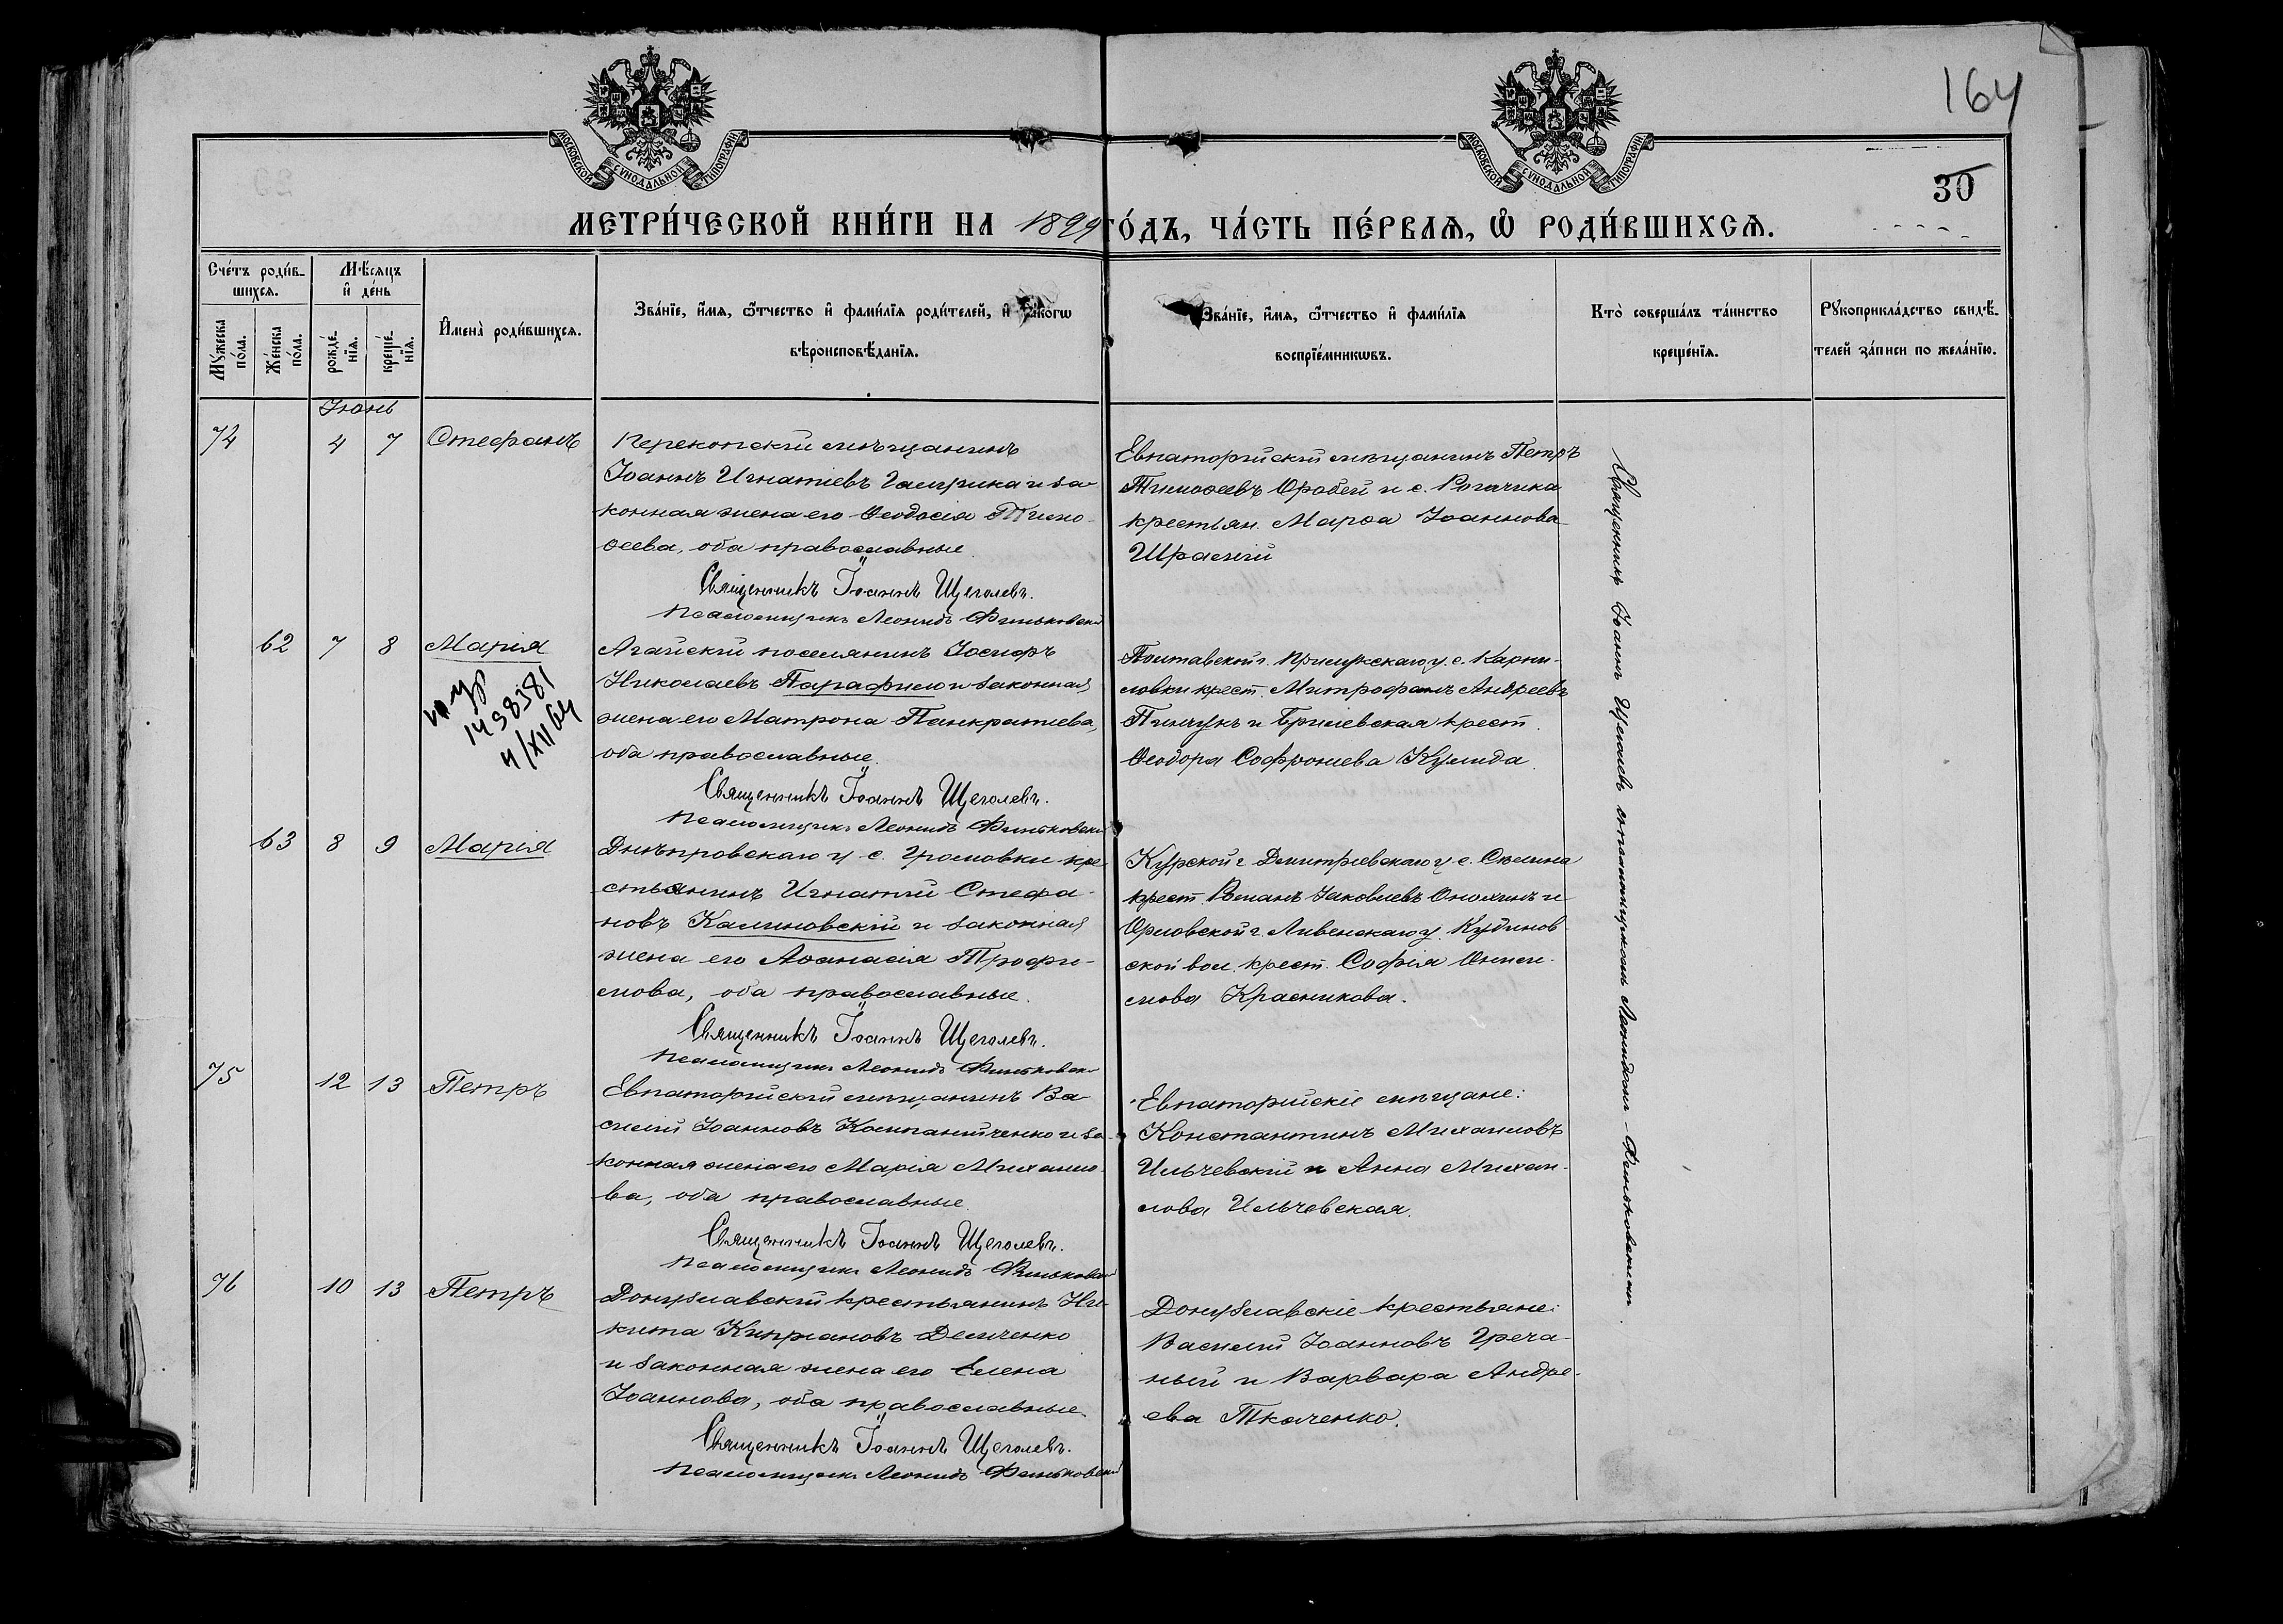 164
30
МОСКОВСКОЙ СѴНОДАЛЬНОЙ ТИПОГРАФІИ
МОСКОВСКОЙ СѴНОДАЛЬНОЙ ТИПОГРАФІИ
МЕТРИ́ЧЕСКОЙ КНИ́ГИ НА 1899 ГО́ДЪ, ЧА́СТЬ ПЕ́РВАѦ, Ѡ РОДИ́ВШИХСѦ.
Сче́тъ роди́в-
шихсѧ.
Мꙋ́жеска по́ла.
Же́нска по́ла.
Мѣ́сѧцъ
и҆ де́нь
рожде́-нїѧ.
креще́-нїѧ.
И҆мена̀ роди́вшихсѧ.
Зва́нїе, и҆́мѧ, ѻ҆́тчество и҆ фами́лїѧ роди́телей, и҆ како́гѡ
вѣроисповѣ́данїѧ.
Зва́нїе, и҆́мѧ, ѻ҆́тчество и҆ фами́лїѧ
воспрїе́мникѡвъ.
Кто̀ соверша́лъ та́инство
креще́нїѧ.
Рꙋкоприкла́дство свидѣ́-
телей за́писи по жела́нїю.
Іюнь
74 4 7 Стефанъ
Перекопскій мѣщанинъ
Іоаннъ Игнатіевъ и за-
конная жена его Ѳеодосія Тимо-
ѳеева, оба православные.
Священникъ Іоаннъ Щеголевъ.
Псаломщикъ Леонидъ Финьковскій
Евпаторійскій мѣщанинъ Петръ
Тимоѳеевъ Оробей и с. Рогачика
крестьян. Марѳа Іоаннова
62 7 8 Марія
1438381
4/XII 64
Агайскій поселянинъ Іосифъ
Николаевъ Парафило и законная
жена его Матрона Панкратиева,
оба православные.
Священникъ Іоаннъ Щеголевъ.
Псаломщикъ Леонидъ Финьковскій
Полтавской г. Прилукскаго у. с.
крест. Митрофанъ Андреевъ
Пинчукъ и крест.
Ѳеодора Софрониева
63 8 9 Марія
Днѣпровскаго у. с. Громовки кре-
стьянинъ Игнатій Стефа-
новъ Калиновскій и законная
жена его Аѳанасія Трофи-
мова, оба православные.
Священникъ Іоаннъ Щеголевъ.
Псаломщикъ Леонидъ Финьковскій
Курской г. Дмитріевскаго у. с.
крест. Романъ Іаковлевъ и
Орловской г. Ливенскаго у. Кудинов-
ской вол. крест. Софія Ониси-
мова Красникова.
75 12 13 Петръ
Евпаторійскій мѣщанинъ Ва-
силій Іоанновъ Компанійченко и за-
конная жена его Марія Михаило-
ва, оба православные.
Священникъ Іоаннъ Щеголевъ.
Псаломщикъ Леонидъ Финьковскій
Евпаторійскіе мѣщане:
Константинъ Михаиловъ
Ильчевскій и Анна Михаи-
лова Ильчевская.
76 10 13 Петръ
Донузлавскій крестьянинъ Ни-
кита Кипріановъ Демченко
и законная жена его Елена
Іоаннова, оба православные.
Священникъ Іоаннъ Щеголевъ.
Псаломщикъ Леонидъ Финьковскій
Донузлавскіе крестьяне:
Василій Іоанновъ Греча-
ный и Варвара Андре-
ева Ткаченко.
Священникъ Іоаннъ Щеголевъ съ псаломщикомъ Леонидомъ Финьковскимъ